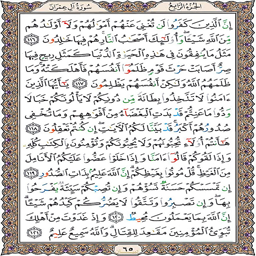 الجزء الرابع سورة آل عمران
إِنَّ الَّذِينَ كَفَرُوا لَن تُغْنِيَ عَنْهُمْ أَمْوَالُهُمْ وَلَا أَوْلَادُهُم
مِّنَ اللَّهِ شَيْئًا وَأُولَٰئِكَ أَصْحَابُ النَّارِ هُمْ فِيهَا خَالِدُونَ ١١٦
مَثَلُ مَا يُنفِقُونَ فِي هَٰذِهِ الْحَيَاةِ الدُّنْيَا كَمَثَلِ رِيحٍ فِيهَا
صِرٌّ أَصَابَتْ حَرْثَ قَوْمٍ ظَلَمُوا أَنفُسَهُمْ فَأَهْلَكَتْهُ وَمَا
ظَلَمَهُمُ اللَّهُ وَلَٰكِنْ أَنفُسَهُمْ يَظْلِمُونَ ١١٧ يَا أَيُّهَا الَّذِينَ
آمَنُوا لَا تَتَّخِذُوا بِطَانَةً مِّن دُونِكُمْ لَا يَأْلُونَكُمْ خَبَالًا
وَدُّوا مَا عَنِتُّمْ قَدْ بَدَتِ الْبَغْضَاءُ مِنْ أَفْوَاهِهِمْ وَمَا تُخْفِي
صُدُورُهُمْ أَكْبَرُ قَدْ بَيَّنَّا لَكُمُ الْآيَاتِ إِن كُنتُمْ تَعْقِلُونَ ١١٨
هَا أَنتُمْ أُولَاءِ تُحِبُّونَهُمْ وَلَا يُحِبُّونَكُمْ وَتُؤْمِنُونَ بِالْكِتَابِ كُلِّهِ
وَإِذَا لَقُوكُمْ قَالُوا آمَنَّا وَإِذَا خَلَوْا عَضُّوا عَلَيْكُمُ الْأَنَامِلَ
مِنَ الْغَيْظِ قُلْ مُوتُوا بِغَيْظِكُمْ إِنَّ اللَّهَ عَلِيمٌ بِذَاتِ الصُّدُورِ ١١٩
إِن تَمْسَسْكُمْ حَسَنَةٌ تَسُؤْهُمْ وَإِن تُصِبْكُمْ سَيِّئَةٌ يَفْرَحُوا
بِهَا وَإِن تَصْبِرُوا وَتَتَّقُوا لَا يَضُرُّكُمْ كَيْدُهُمْ شَيْئًا
إِنَّ اللَّهَ بِمَا يَعْمَلُونَ مُحِيطٌ ١٢٠ وَإِذْ غَدَوْتَ مِنْ أَهْلِكَ
تُبَوِّئُ الْمُؤْمِنِينَ مَقَاعِدَ لِلْقِتَالِ وَاللَّهُ سَمِيعٌ عَلِيمٌ ١٢١
٦٥